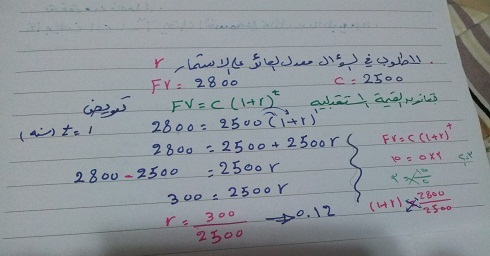 المطلوب في السؤال معدل العائد على الاستثمار r
FV = 2800 C = 2500
قانون القيمة المستقبلية FV = C (1+r)^t تعويض
2800 = 2500 (1+r)^1 t = 1 (سنة)
2800 = 2500 + 2500r
2800 - 2500 = 2500r
300 = 2500r
r = 300/2500 → 0.12
FV = C(1+r)^t
١٠ = ٥×٢
٢ = ١٠/٥
(1+r) = 2800/2500